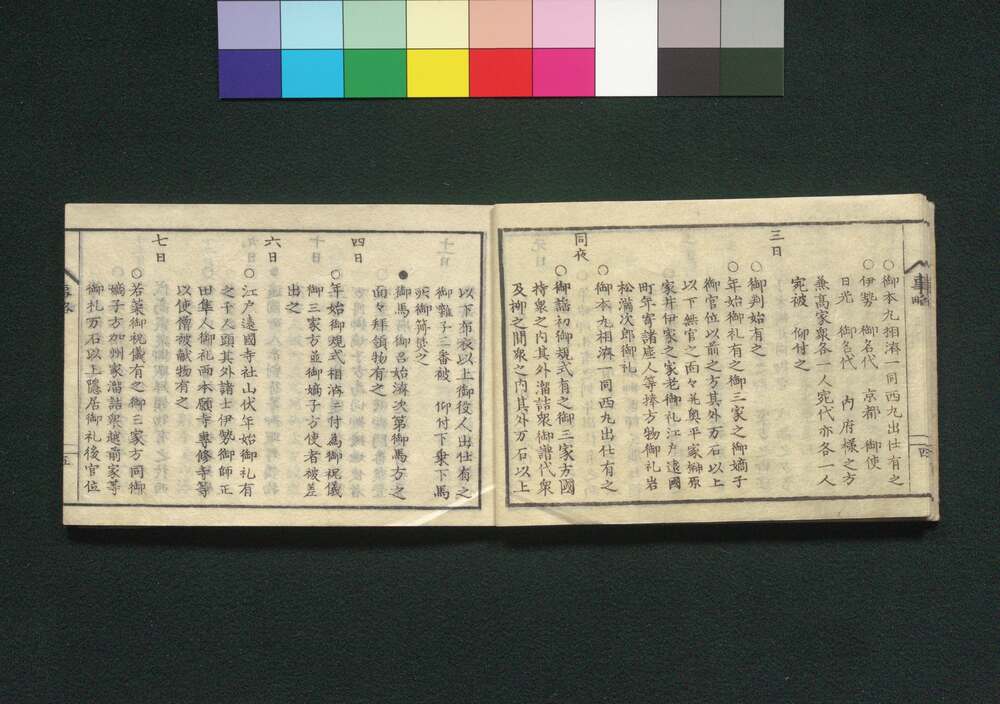 ○御本丸相濟一同西丸出仕有之
○伊勢 御名代 京都 御使
日光 御名代 内府様之方
兼高家衆各一人宛代亦各一人
宛被 仰付之
三日
○御判始有之
○年始御礼有之御三家之御嫡子
御官位以前之方其外万石以上
以下無官之面々並奥平家榊原
家井伊家之家老御礼江戸遠國
町年寄諸座人等捧方物御礼岩
松満次郎御礼
○御本丸相濟一同西丸出仕有之
同夜
○御謡初御規式有之御三家方國
持衆之内其外溜詰衆御譜代衆
及柳之間衆之内其外万石以上
四
以下布衣以上御役人出仕有之
御雜子二番被 仰付下乗下馬
●御馬御召始濟次第御馬方之
面々拜領物有之
四日
○年始御規式相濟ニ付為御祝儀
御三家方並御嫡子方使者被差
出之
六日
○江户遠國寺社山伏年始御礼有
之千人頭其外諸士伊勢御師正
田隼人御礼両本願寺専修寺等
以使僧被献物有之
七日
○若菜御祝儀有之御三家方同御
嫡子方加州家溜詰衆越前家等
御礼万石以上隠居御礼後官位
五